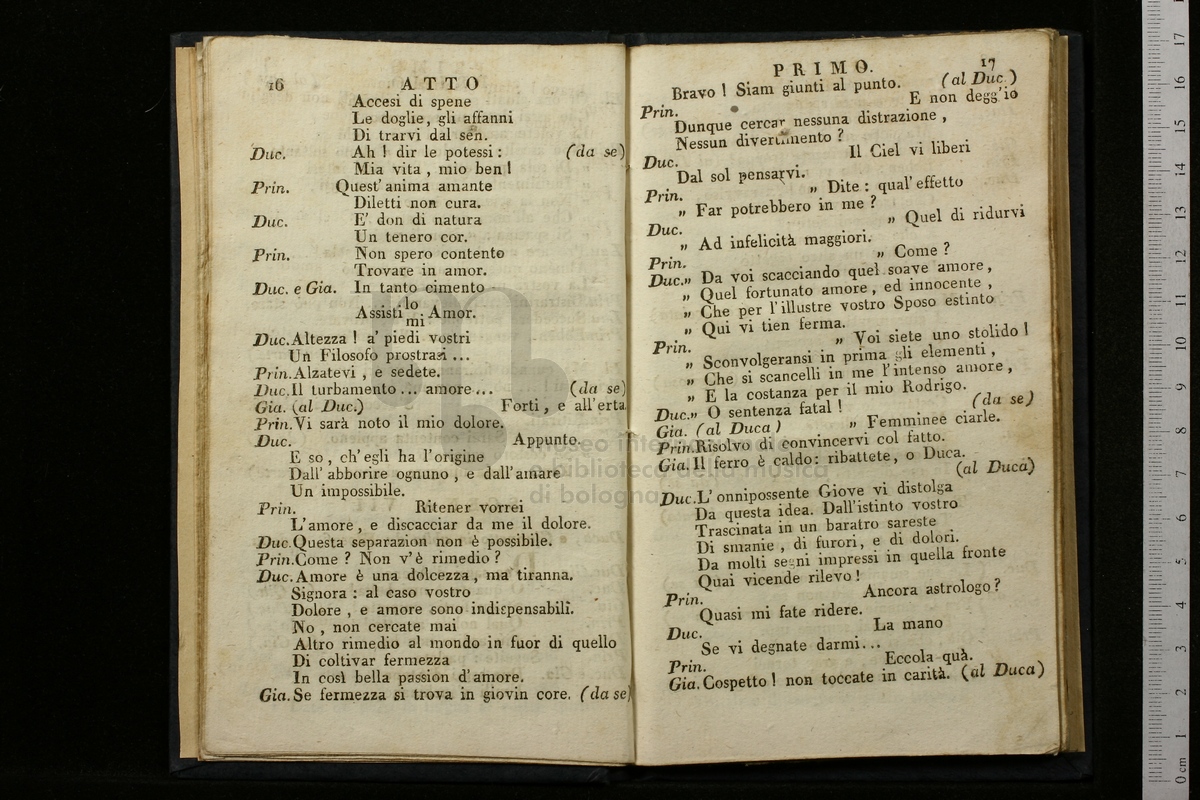 16 ATTO
Accesi di spene
Le doglie, gli affanni
Di trarvi dal sen.
Duc. Ah ! dir le potessi : (da se)
Mia vita , mio ben !
Prin. Quest' anima amante
Diletti non cura.
Duc. E' don di natura
Un tenero cor.
Prin. Non spero contento
Trovare in amor.
Duc. e Gia. In tanto cimento
Assisti lo mi Amor.
Duc. Altezza ! a' piedi vostri
Un Filosofo prostrasi ...
Prin. Alzatevi , e sedete.
Duc. Il turbamento ... amore ... (da se)
Gia. (al Duc.) Forti , e all'erta
Prin. Vi sarà noto il mio dolore.
Duc. Appunto.
E so , ch'egli ha l'origine
Dall' abborire ognuno , e dall'amare
Un impossibile.
Prin. Ritener vorrei
L'amore , e discacciar da me il dolore.
Duc. Questa separazion non è possibile.
Prin. Come ? Non v'è rimedio ?
Duc. Amore è una dolcezza , ma tiranna.
Signora : al caso vostro
Dolore , e amore sono indispensabili.
No , non cercate mai
Altro rimedio al mondo in fuor di quello
Di coltivar fermezza
In così bella passion d'amore.
Gia. Se fermezza si trova in giovin core. (da se)
PRIMO. 17
Bravo ! Siam giunti al punto. (al Duc.)
Prin. E non degg'io
Dunque cercar nessuna distrazione ,
Nessun divertimento ?
Duc. Il Ciel vi liberi
Dal sol pensarvi.
Prin. „ Dite : qual'effetto
„ Far potrebbero in me ?
Duc. „ Quel di ridurvi
„ Ad infelicità maggiori.
Prin. „ Come ?
Duc. „ Da voi scacciando quel soave amore ,
„ Quel fortunato amore , ed innocente ,
„ Che per l'illustre vostro Sposo estinto
„ Qui vi tien ferma.
Prin. „ Voi siete uno stolido !
„ Sconvolgeransi in prima gli elementi ,
„ Che si scancelli in me l'intenso amore ,
„ E la costanza per il mio Rodrigo.
Duc. „ O sentenza fatal ! (da se)
Gia. (al Duca) „ Femminee ciarle.
Prin. Risolvo di convincervi col fatto.
Gia. Il ferro è caldo: ribattete, o Duca.
(al Duca)
Duc. L' onnipossente Giove vi distolga
Da questa idea. Dall'istinto vostro
Trascinata in un baratro sareste
Di smanie , di furori, e di dolori.
Da molti segni impressi in quella fronte
Quai vicende rilevo !
Prin. Ancora astrologo ?
Quasi mi fate ridere.
Duc. La mano
Se vi degnate darmi...
Prin. Eccola quà.
Gia. Cospetto ! non toccate in carità. (al Duca)
museo internazionale
e biblioteca della musica
di bologna
0 cm 1 2 3 4 5 6 7 8 9 10 11 12 13 14 15 16 17